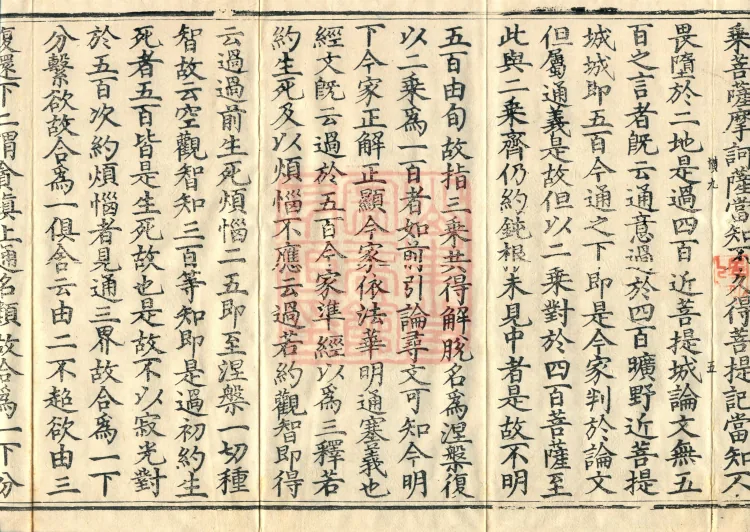 乘菩薩摩訶薩當知不久得菩提記當知不
橫九
五
畏墮於二地是過四百近菩提城論文無五
百之言者旣云通意過於四百曠野近菩提
城城即五百今通之下即是今家判於論文
但屬通義是故但以二乘對於四百菩薩至
此與二乘齊仍約鈍根未見中者是故不明
五百由旬故指三乘共得解脫名爲涅槃復
以二乘爲一百者如前引論尋文可知今明
下今家正解正顯今家依法華明通塞義也
經文旣云過於五百今家準經以爲三釋若
約生死及以煩惱不應云過若約觀智即得
云過過前生死煩惱二五即至涅槃一切種
智故云空觀智知三百等知即是過初約生
死者五百皆是生死故也是故不以寂光對
於五百次約煩惱者見通三界故合爲一下
分繫欲故合爲一俱舍云由二不超欲由三
復還下二謂貪瞋上通名類故合爲一下分